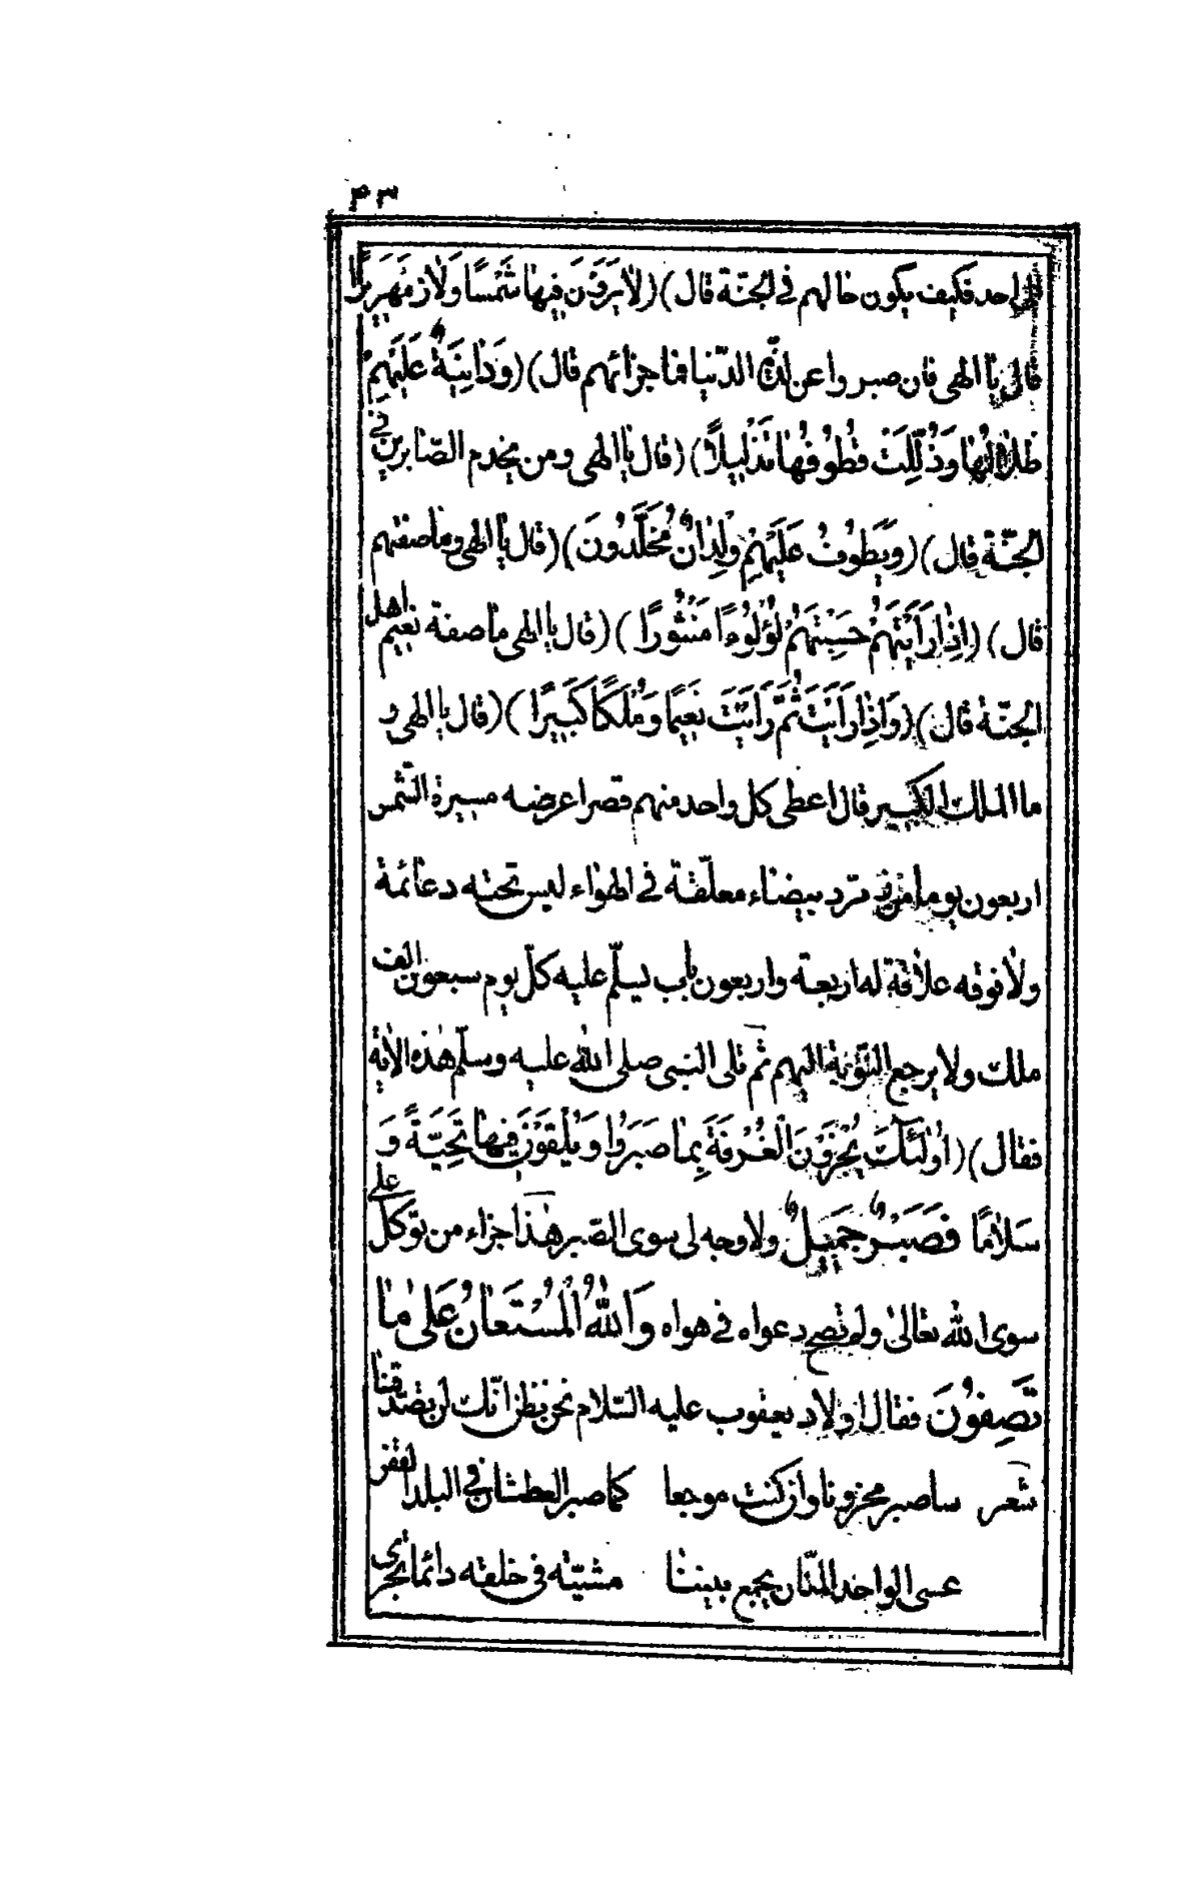 ۴۳
احد فكيف يكون حالهم في الجنّة قال) (لَا يَرَوْنَ فِيهَا شَمْسًا وَلَا زَمْهَرِيرًا
قال يا الهى فان صبروا عن الدّنيا فما جزائهم قال) (وَدَانِيَةً عَلَيْهِمْ
ظِلَالُهَا وَذُلِّلَتْ قُطُوفُهَا تَذْلِيلًا) (قال يا الهى ومن يخدم الصّابرين في
الجنّة قال) (وَيَطُوفُ عَلَيْهِمْ وِلْدَانٌ مُخَلَّدُونَ) (قال يا الهى وما صفتهم
قال) (اِذَا رَاَيْتَهُمْ حَسِبْتَهُمْ لُؤْلُوءًا مَنْثُورًا) (قال يا الهى ما صفة نعيم اهل
الجنّة قال) (وَاِذَا رَاَيْتَ ثَمَّ رَاَيْتَ نَعِيمًا وَمُلْكًا كَبِيرًا) (قال يا الهى و
ما الملك الكبير قال اعطى كل واحد منهم قصرا عرضه مسيرة الشّمس
اربعون يوما من درّ بيضاء معلّقة في الهواء ليس تحته دعائمة
ولا فوقه علاقة له اربعة واربعون باب يسلّم عليه كلّ يوم سبعون الف
ملك ولا يرجع النّوبة اليهم ثم تلى النبى صلى الله عليه وسلّم هذه الاية
فقال) (اُولٰئِكَ يُجْزَوْنَ الْغُرْفَةَ بِمَا صَبَرُوا وَيُلَقَّوْنَ فِيهَا تَحِيَّةً وَ
سَلَامًا فَصَبْرٌ جَمِيلٌ ولا وجه لى سوى الصّبر هذا جزاء من توكّل على
سوى الله تعالى ولم تصح دعواه في هواه وَاللّٰهُ الْمُسْتَعَانُ عَلَى مَا
تَصِفُونَ فقال اولاد يعقوب عليه السّلام نحن نظن انّك لن تصدّقنا
شعر ساصبر محزونا وان كنت موجعا كما صبر العطشان في البلد القفر
عسى الواحد المنّان يجمع بيننا مشيّته في خلقه دائما تجرى